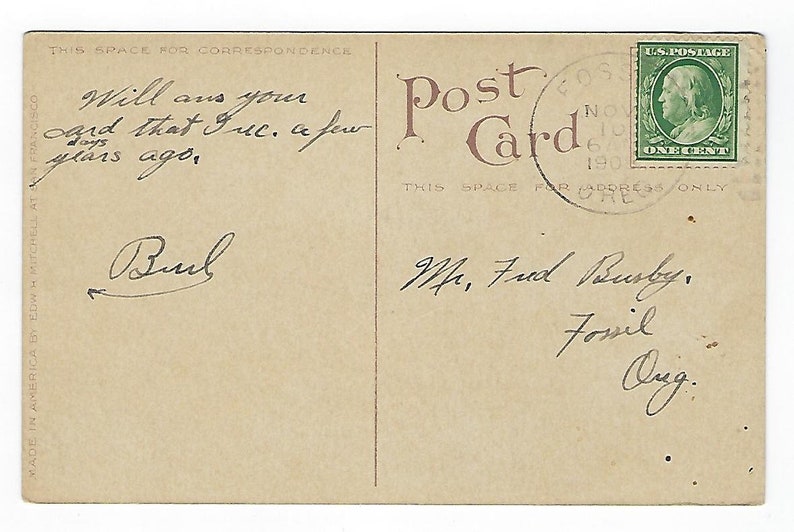 THIS SPACE FOR CORRESPONDENCE
Will ans your
card that I rec. a few
days
years ago.
Burl
MADE IN AMERICA BY EDW. H. MITCHELL AT SAN FRANCISCO
Post
Card
THIS SPACE FOR ADDRESS ONLY
U.S. POSTAGE
ONE CENT
FOSS
NOV
10
190
OREG
Mr. Fred Busby.
Fossil
Oreg.